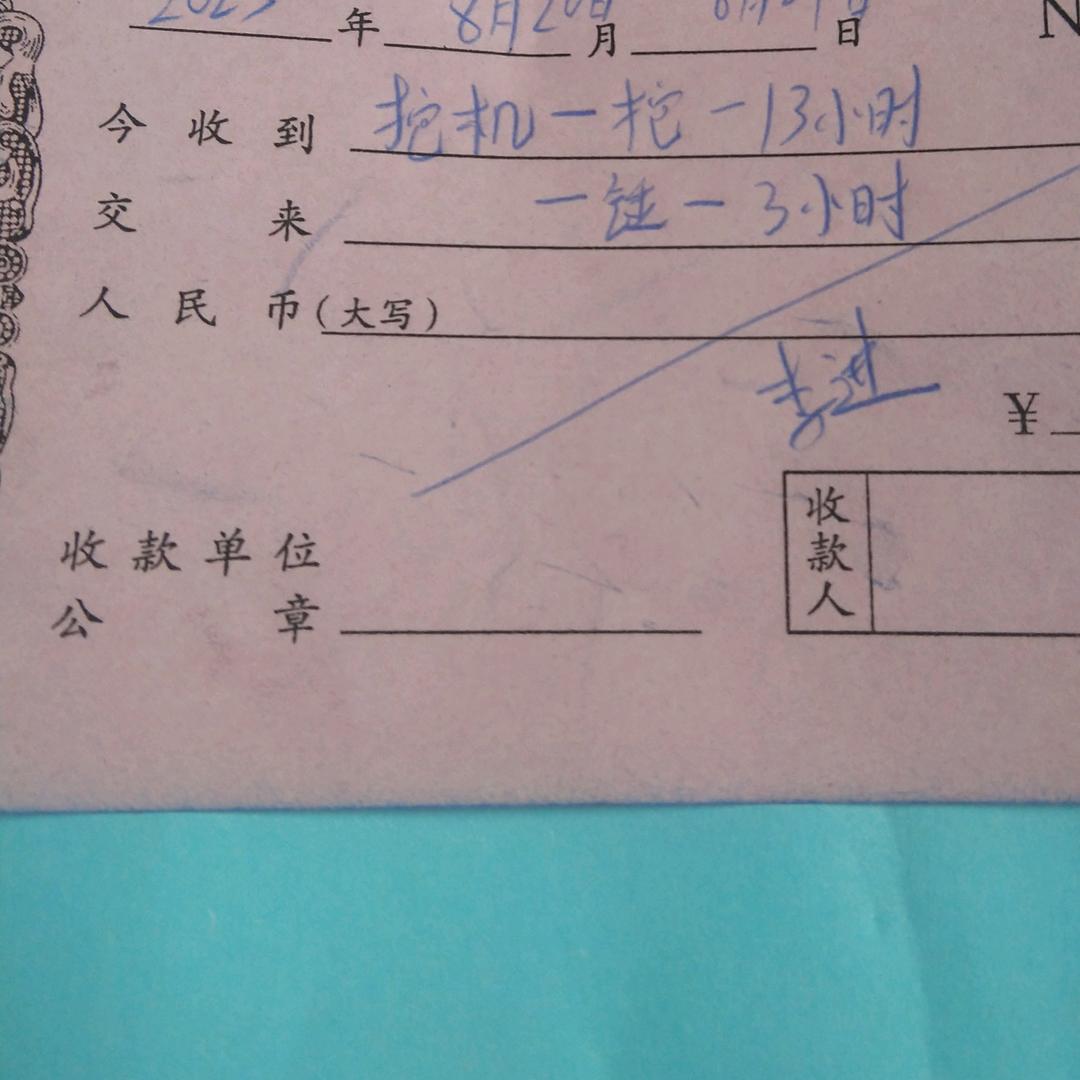 2023年8月20日月 日 N
今收到 挖机一挖一13小时
交来 一锤一3小时
人民币(大写)
李进
¥
收款单位
公章
收款人